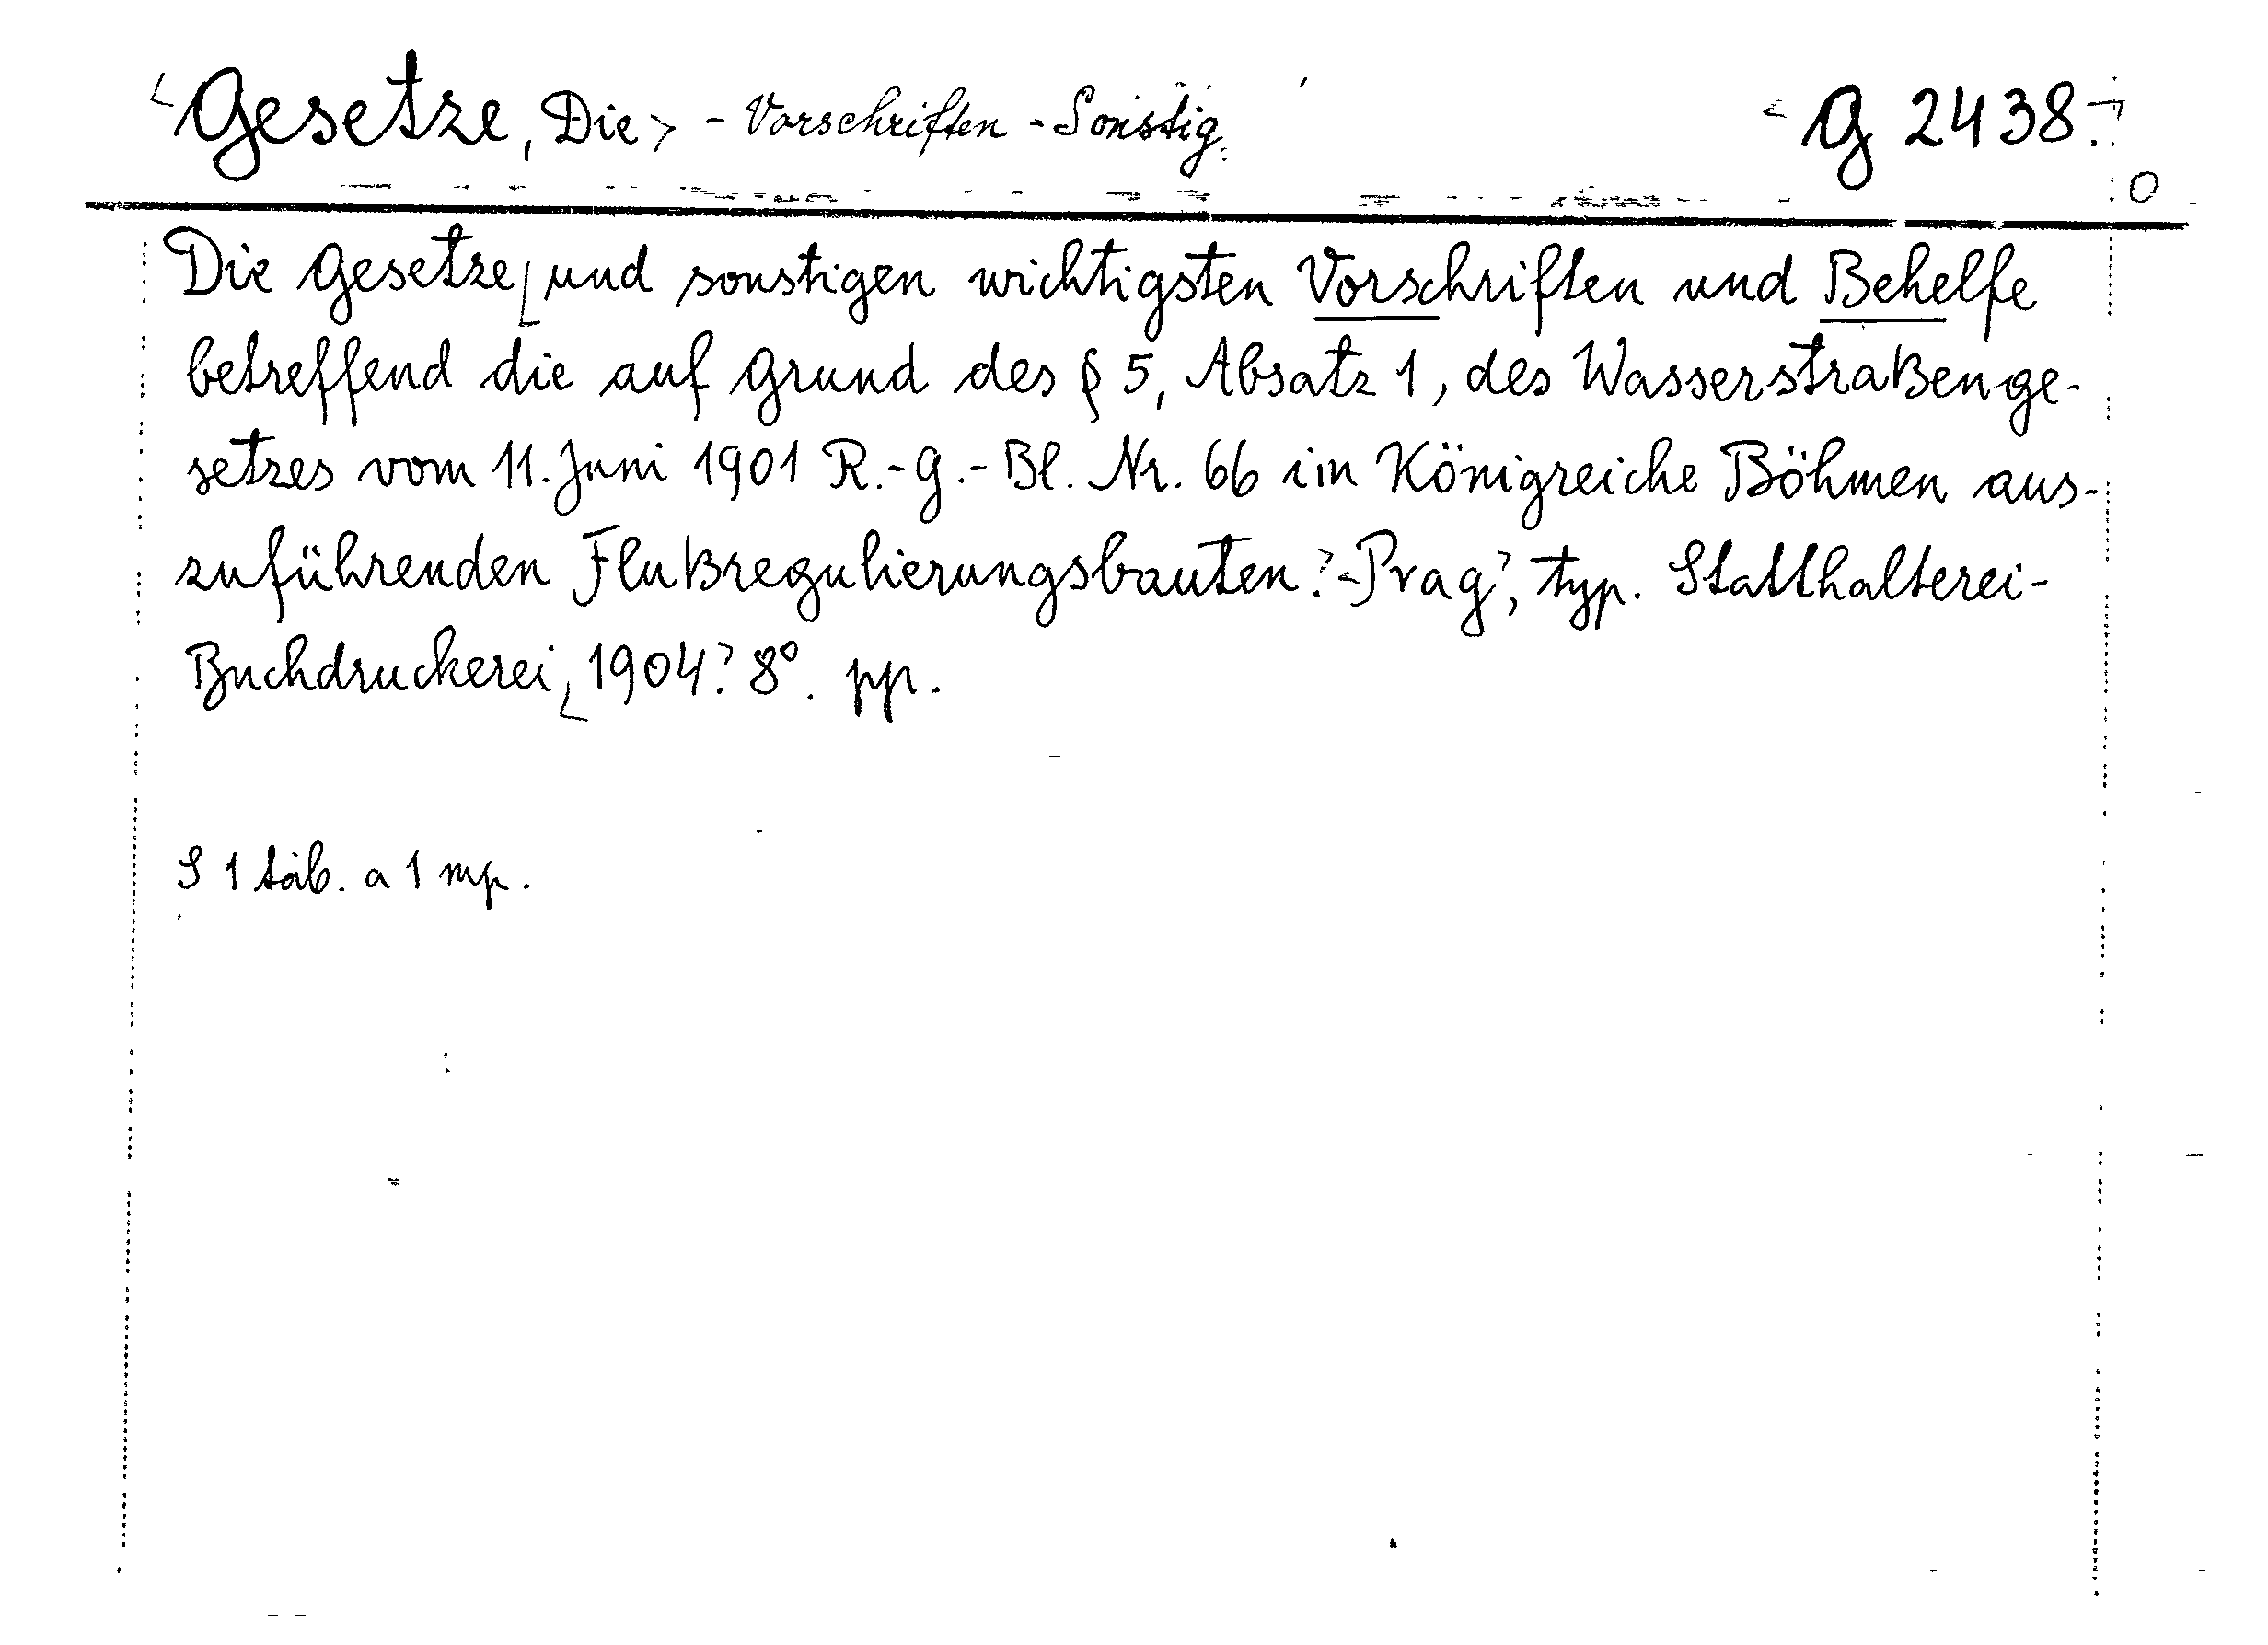 Gesetze, Die - Vorschriften - Sonstig. G 2438.
Die Gesetze und sonstigen wichtigsten Vorschriften und Behelfe
betreffend die auf Grund des § 5, Absatz 1, des Wasserstraßenge-
setzes vom 11. Juni 1901 R.-G.-Bl. Nr. 66 im Königreiche Böhmen aus-
zuführenden Flußregulierungsbauten. - Prag, typ. Statthalterei-
Buchdruckerei, 1904. 8°. pp.
S 1 tab. a 1 mp.